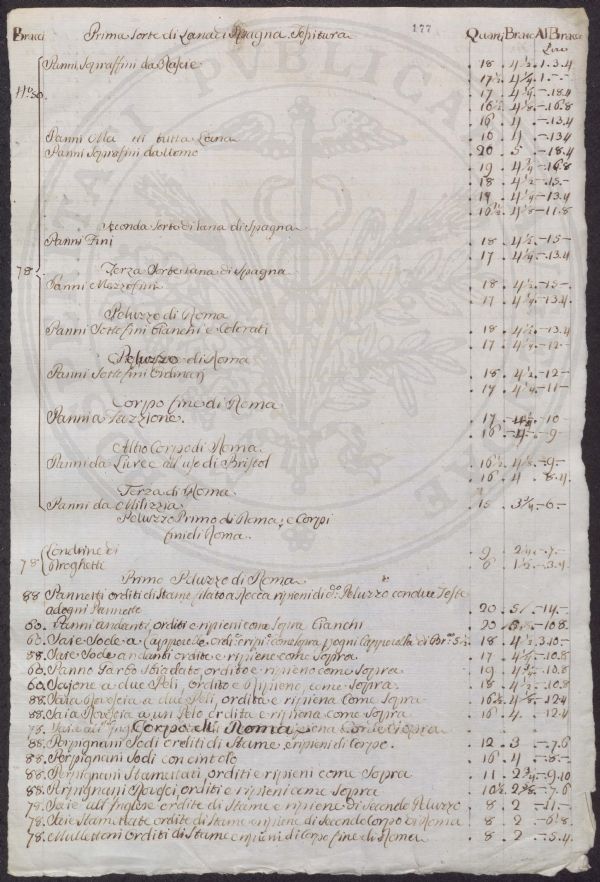 Bracci Prima Sorte di Lana di Spagna Tessitura 177 Quarri Bracc Al Bracci
Lire
Panni Sopraffini da Rascie 18 4½ 1.3.4
17½ 4¼ 1.-.-
17 4¼ -.18.4
16½ 4⅛ -.16.8
16 4 -.13.4
Panni di tutta Lana 16 4 -.13.4
Panni Sopraffini da Uomo 20 5 -.18.4
19 4¾ -.16.8
18 4½ -.15.-
17 4¼ -.13.4
16½ 4⅛ -.11.8
Seconda Sorte di lana di Spagna
Panni Fini 18 4½ -.15.-
17 4¼ -.13.4
78
Terza Sorte Lana di Spagna
Panni Mezzofini 18 4½ -.15.-
17 4¼ -.13.4
Peluzzo di Roma
Panni Sottofini Bianchi e Colorati 18 4½ -.13.4
17 4¼ -.12.-
Peluzzo di Roma
Panni Sottofini Ordinari 18 4½ -.12.-
17 4¼ -.11.-
Corpo fine di Roma
Panni a Sazzione 17 4¼ -.10.-
16 4 -.9.-
Altro Corpo di Roma
Panni da Livree all'uso di Bristol 16½ 4⅛ -.9.-
16 4 .8.4
Terza di Roma
Panni da Milizzia 15 3¾ -.6.-
Peluzzo Primo di Roma, e Corpi
fini di Roma
Londrine di 9 2¼ -.7.-
78 Broghetti 6 1½ -.3.4
Primo Peluzzo di Roma
88 Pannetti orditi di Stame filato a Rocca ripieni di do. Peluzzo con due Teste
ad ogni Pannetto 20 5 -.14.-
60. Panni andanti orditi e ripieni come sopra Bianchi 20 5 -.10.8
60. Saie Sode a Capperelle ordi: e ripi: come sopra p. ogni Capperella di Br. 5½ 18 4½ 3.10.-
88. Saie Sode andanti ordite e ripiene come Sopra 17 4¼ -.10.8
60. Panno Garbo Sbiadato ordito e ripieno come Sopra 19 4¾ -.10.8
60. Sajone a due Peli, ordito e Ripieno, come Sopra 18 4½ -.10.8
88. Saia Rovescia a due Peli, ordita e ripiena Come Sopra 16½ 4⅛ -.12.4
88. Saia Rovescia a un Pelo ordita e ripiena come Sopra 16 4 -.12.4
78. Corpo di Roma
88. Perpignani Sodi orditi di Stame e ripieni di Corpo 12 3 -.7.6
88. Perpignani Sodi con cintolo 16 4 -.8.-
88. Perpignani Stamettati, orditi e ripieni come Sopra 11 2¾ -.9.10
88. Perpignani Rovesci, orditi e ripieni come Sopra 10½ 2⅝ -.7.6
78. Saie all'Inglese ordite di Stame e ripiene di Secondo Peluzzo 8 2 -.11.-
78. Saie Stamettate ordite di Stame e ripiene di Secondo Corpo di Roma 8 2 -.6.8
78. Mullettoni Orditi di Stame e ripieni di Corpo fine di Roma 8 2 -.5.4